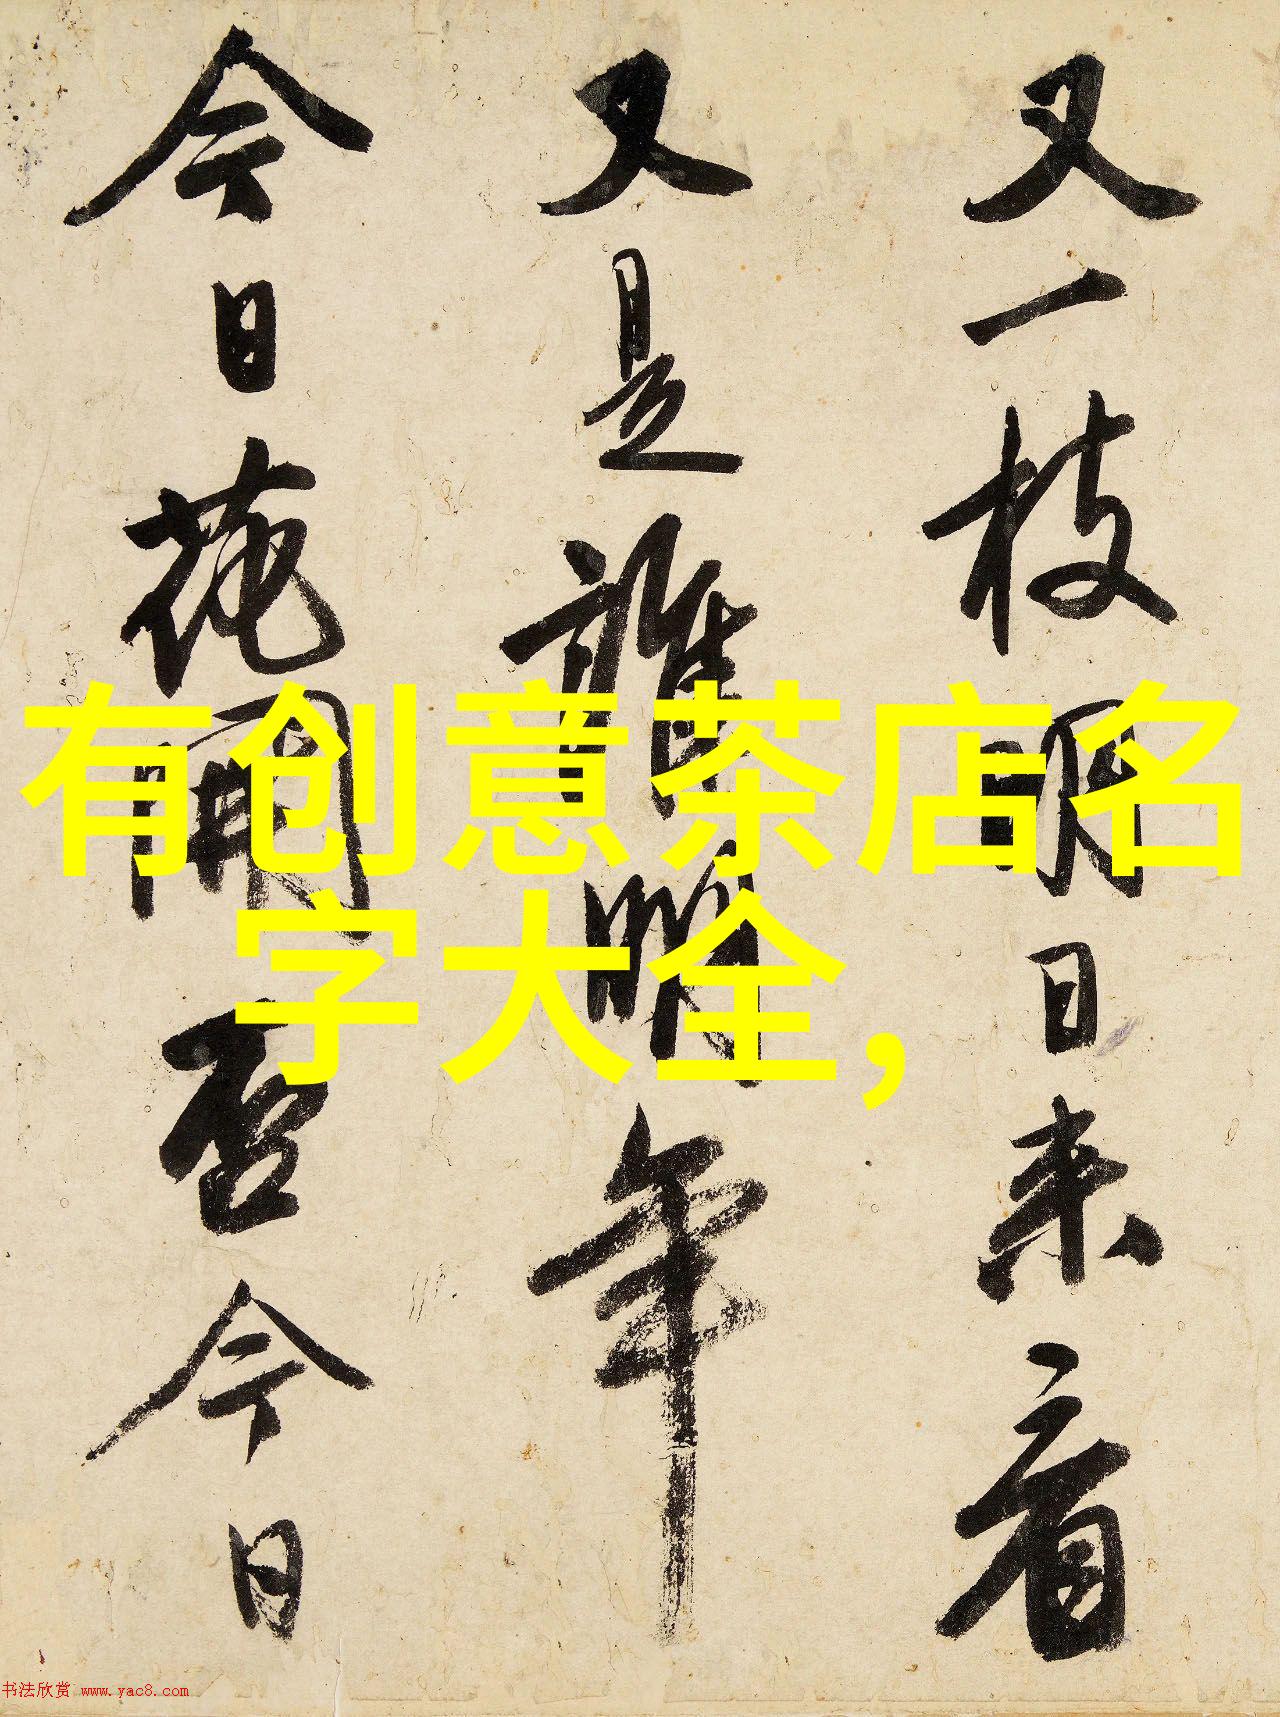 又一枝明日来看
又是誰明年
今日花開否今日
有创意茶店名
字大全,
书法欣赏 www.yac8.com